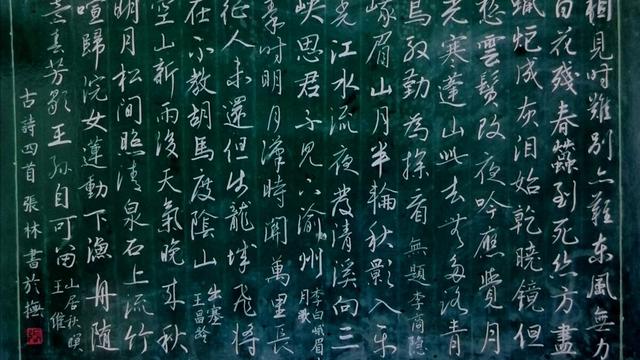 相見時難別亦難東風無力
百花殘春蠶到死絲方盡
蠟炬成灰泪始乾曉鏡但
愁雲鬢改夜吟應覺月
光寒蓬山此去無多路青
鳥殷勤為探看 無題 李商隱
峨眉山月半輪秋影入平
羌江水流夜發清溪向三
峽思君不見下渝州 李白峨眉
月歌
秦時明月漢時關萬里長
征人未還但使龍城飛將
在不教胡馬度陰山 出塞
王昌齡
空山新雨後天氣晚來秋
明月松間照清泉石上流竹
喧歸浣女蓮動下漁舟隨
意春芳歇王孫自可留 山居秋暝
王維
古詩四首 張林書於撫